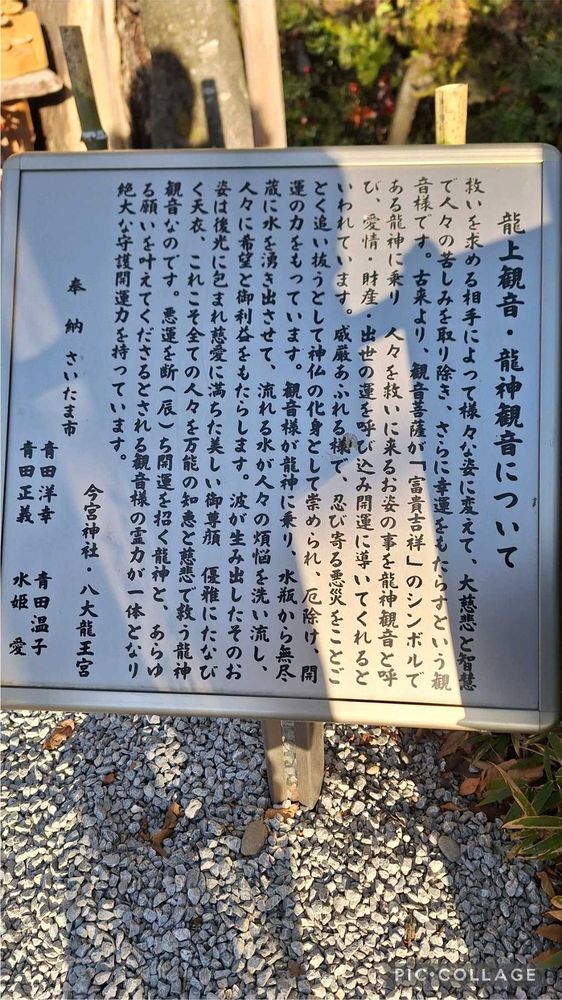 龍上観音・龍神観音について
救いを求める相手によって様々な姿に変えて、大慈悲と智慧
で人々の苦しみを取り除き、さらに幸運をもたらすという観
音様です。古来より、観音菩薩が「富貴吉祥」のシンボルで
ある龍神に乗り 人々を救いに来るお姿の事を龍神観音と呼
び、愛情・財産・出世の運を呼び込み開運に導いてくれると
いわれています。威厳あふれる様で、忍び寄る悪災をことご
とく追い抜うとして神仏の化身として崇められ、厄除け、開
運の力をもっています。観音様が龍神に乗り、水瓶から無尽
蔵に水を湧き出させて、流れる水が人々の煩悩を洗い流し、
人々に希望と御利益をもたらします。波が生み出したそのお
姿は後光に包まれ慈愛に満ちた美しい御尊顔 優雅にたなび
く天衣、これこそ全ての人々を万能の知恵と慈悲で救う龍神
観音なのです。悪運を断(辰)ち開運を招く龍神と、あらゆ
る願いを叶えてくださるとされる観音様の霊力が一体となり
絶大な守護開運力を持っています。
今宮神社・八大龍王宮
奉納 さいたま市
青田洋幸 青田温子
青田正義 水姫 愛
PIC•COLLAGE